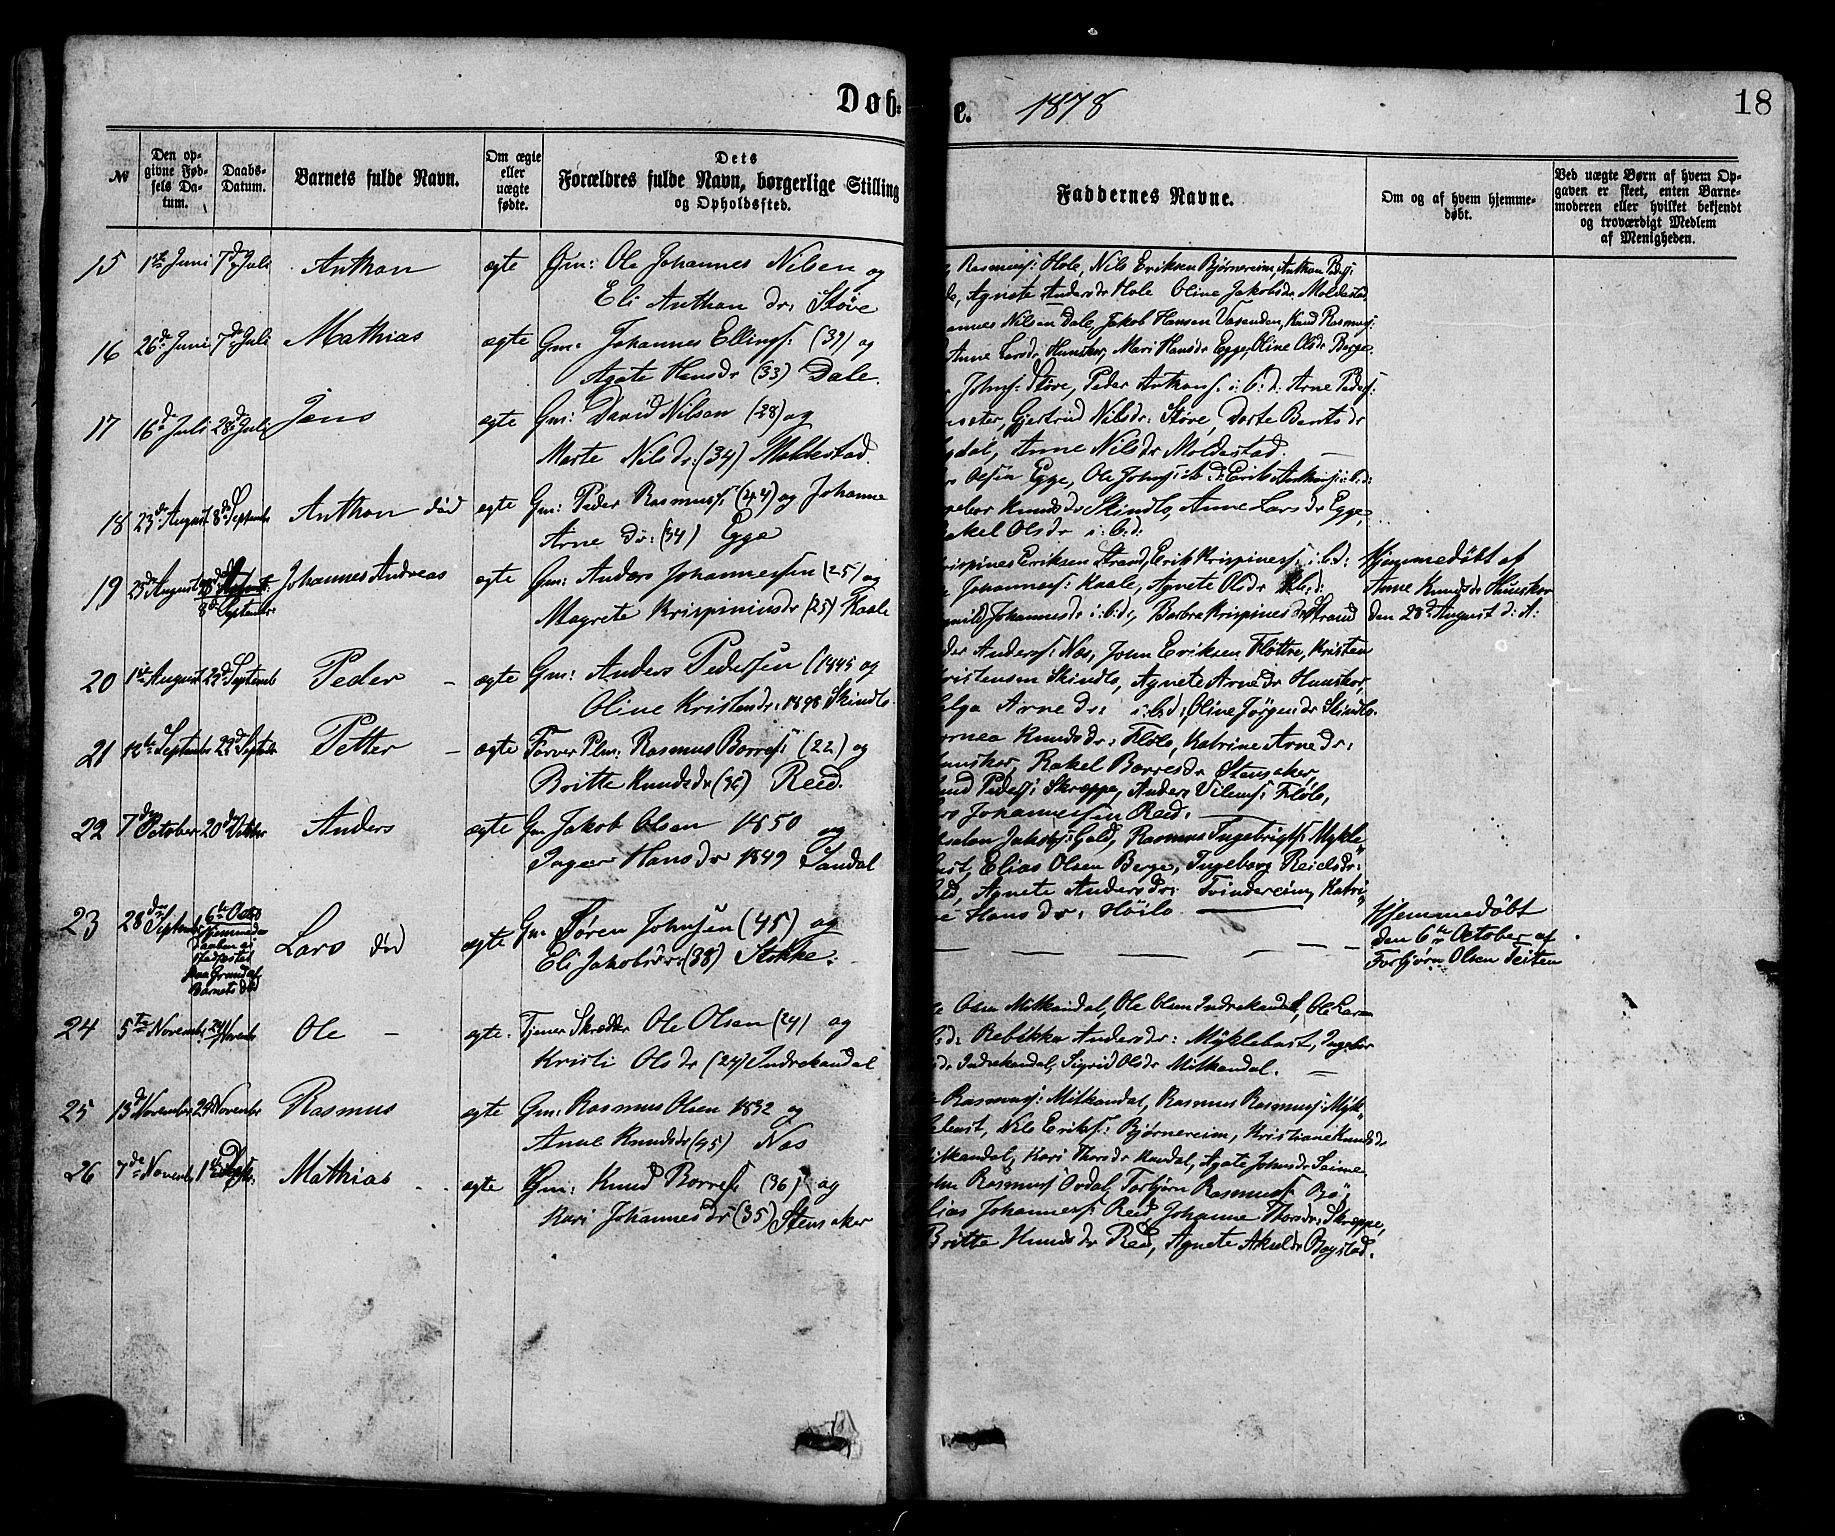 Døb=
e. 1878
18
№
Den op-
givne Fød-
sels Da-
tum.
Daabs-
Datum.
Barnets fulde Navn.
Om ægte
eller
uægte
fødte.
Dets
Forældres fulde Navn, borgerlige Stilling
og Opholdssted.
Faddernes Navne.
Om og af hvem hjemme-
døbt.
Ved uægte Børn af hvem Op-
gaven er skeet, enten Barne-
moderen eller hvilket bekjendt
og troværdigt Medlem
af Menigheden.
15 1ste Juni 7de Juli Anthon ægte Gm: Ole Johannes Nilsen og
Eli Anthon dr: Støve
Rasmuss: Hole, Nils Eriksen Bjørnereim, Anthon Peders:
Agnete Andersdr Hole Oline Jakobsdr Moldestad
16 26de Juni 7de Juli Mathias ægte Gm: Johannes Ellings: (39) og
Agate Hansdr (33) Dale.
Nilsen Dale, Jakob Hansen Vasenden, Knud Rasmus:
Anne Larsdr Hunskor, Mari Hansdr Egge, Oline Olsdr Berge.
17 16de Juli 28de Juli Jens ægte Gm: David Nilsen (28) og
Marte Nilsdr: (34) Moldestad.
Johns: Støve, Peder Anthons: i: b: d: Arne Peders:
Gjertrud Nilsdr: Støve, Dorte Bentsdr
Anne Nilsdr Moldestad.
18 23de August 8de Septembr Anthon død ægte Gm: Peder Rasmuss: (44) og Johanne
Arne dr: (34) Egge
Olsen Egge, Ole Johns: i: b: d: Erik Anthons: i: b: d:
Knudsdr Skindlo, Anne Lars dr Egge,
Rakel Olsdr i: b: d:
19 25de August
8de Septembr Johannes Andreas ægte Gm: Anders Johannessen (25) og
Magrete Krispiniusdr (25) Kaale
Krispines Eriksen Strand, Erik Krispiness: i: b: d:
Johanness: Kaale, Agnete Olsdr i: b: d:
Johannesdr i: b: d:, Barbra Krispinesdr Strand
Hjemmedøbt af
Anne Knudsdr Hunskor
den 28de August d: A:
20 1ste August 22de Septemb Peder – ægte Gm: Anders Pedersen (1845 og
Oline Kristendr: 18 Skindlo
Anderss: Nos, John Eriksen Fløttre, Kristen
Kristensen Skindlo, Agnete Arnedr Hunskor,
Helga Arnedr: i: b: d: Oline Jørgendr Skindlo.
21 Septembr 22de Septbr Petter – ægte Forver Plm: Rasmus Borres: (22) og
Britte Knudsdr (36) Reed.
Knudsdr: Fløla, Katrine Arnedr:
Hunskor, Rakel Borresdr Stensaker,
Knud Peders: Skreppe, Anders Vilems: Fløla,
Johannessen Reed.
22 7de October 20de Octbr Anders ægte Gm Jakob Olsen 1850 og
Inger Hansdr 1849 Sandal
Absalon Jakobs: Gald, Rasmus Ingebrigts: Mykle=
bust, Elias Olsen Berge, Ingeborg Reielsdr:
Agnete Andersdr: Tvindereim, Katri=
ne Hansdr: Höilo.
23 28de Septembr 6te Octbr
Hjemmedaaben ei
stadfæstet
paa Grund af
Barnets Død
Lars død ægte Gm Søren Johnsen (45) og
Eli Jakobsdr: (38) Stokke.
Hjemmedøbt
den 6te October af
Torbjørn Olsen Teiten
24 5te Novembr 24de Novemb Ole – ægte. Tjener Skrædder Ole Olsen (24) og
Kristi Olsdr (24) Indrekandal
Olsen Mitkandal, Ole Olsen Indrekandal, Ole
Rebikka Andersdr: Myklebust, Ingebor
Indrekandal, Sigrid Olsdr Mitkandal.
25 13de Novembr 24de Novembr Rasmus ægte Gm: Rasmus Olsen 1832 og
Anne Knudsdr (45) Nos
Rasmuss: Mitkandal, Rasmus Rasmuss: Myk=
lebust, Nils Eriks: Bjørnereim, Kristiane Knudsdr
Mitkandal, Kari Thorsdr Kandal, Agate Johnsdr Seime
26 7de Novemb 1ste Mathias ægte Gm: Knud Borres: (36) og
Kari Johannesdr (35) Stensaker
John Rasmuss: Ordal, Torbjørn Rasmuss: Bø,
Elias Johanness: Reed Johanne Thorsdr: Skreppe,
Britte Knudsdr Reed, Agnete Akseldr Bogstad.